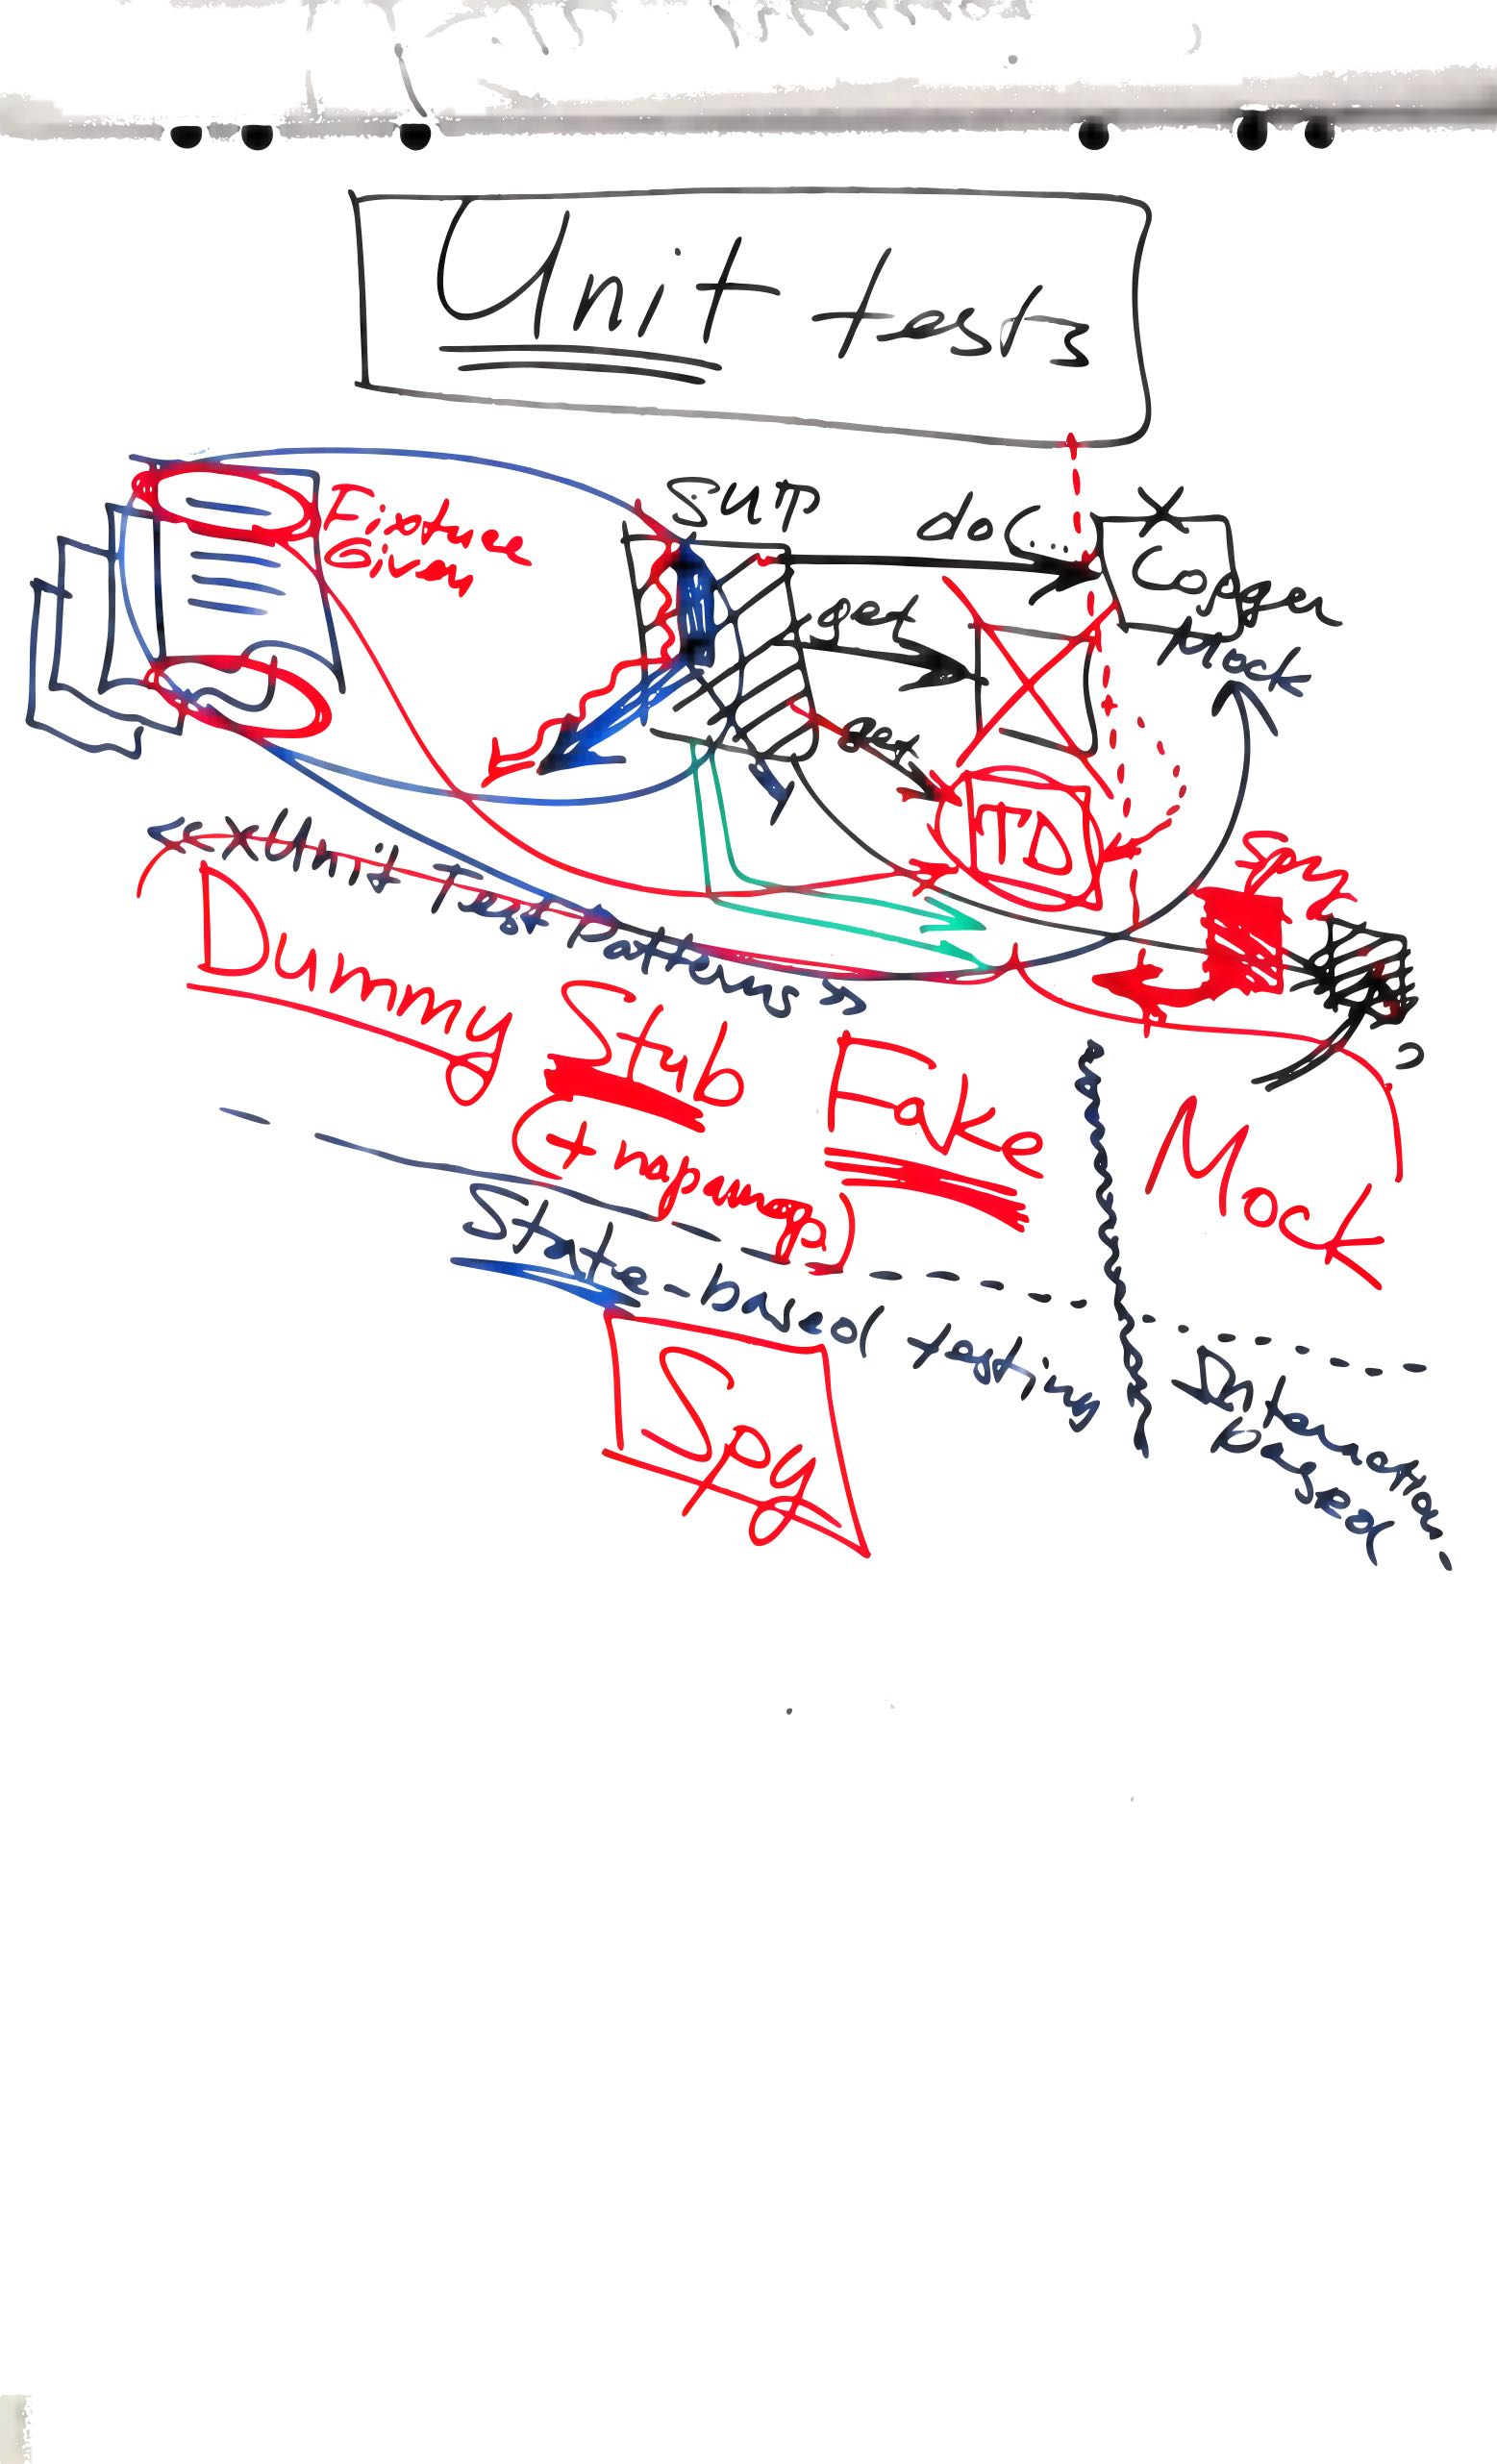 Unit tests
Fixture
Given
SUT
doC....
Logger
Mock
get
get
TD
<< xUnit Test Patterns >>
Dummy
Stub
Fake
Mock
State-based testing
Interaction-
based
Spy